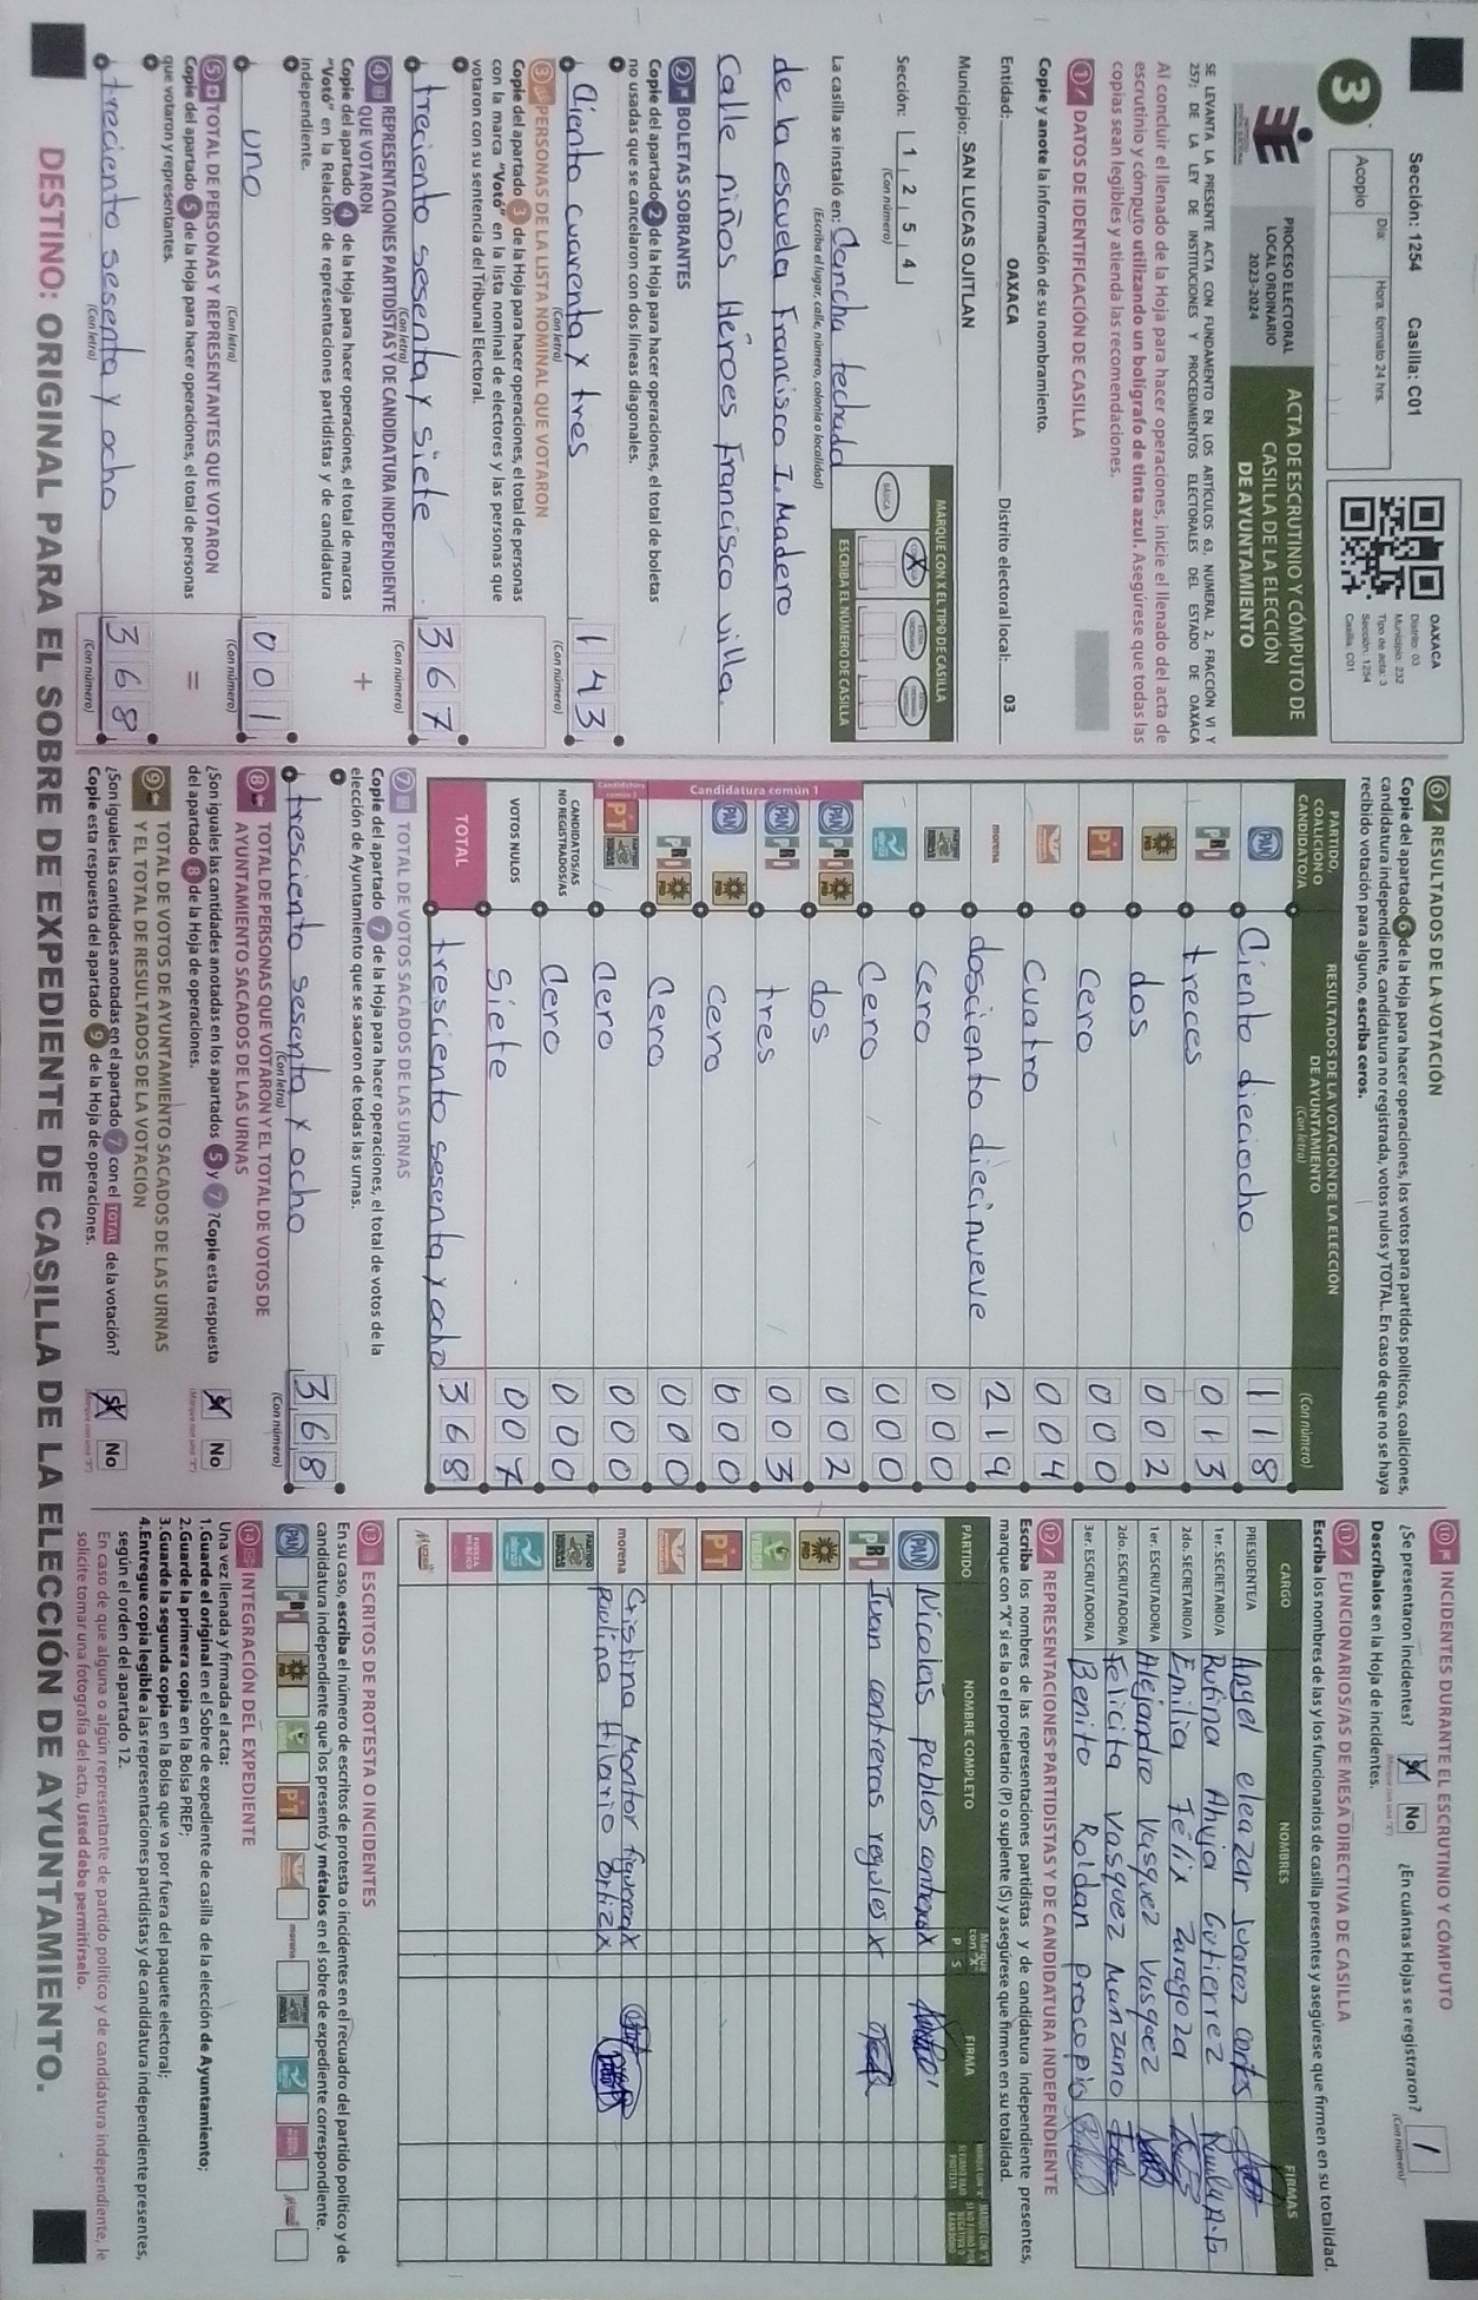 Sección: 1254 Casilla: C01
Día: Hora: formato 24 hrs.
Acopio
3
OAXACA
Distrito: 03
Municipio: 232
Tipo de acta: 3
Sección: 1254
Casilla: C01
PROCESO ELECTORAL
LOCAL ORDINARIO
2023-2024
ACTA DE ESCRUTINIO Y CÓMPUTO DE
CASILLA DE LA ELECCIÓN
DE AYUNTAMIENTO
SE LEVANTA LA PRESENTE ACTA CON FUNDAMENTO EN LOS ARTÍCULOS 63, NUMERAL 2, FRACCIÓN VI Y
257; DE LA LEY DE INSTITUCIONES Y PROCEDIMIENTOS ELECTORALES DEL ESTADO DE OAXACA
Al concluir el llenado de la Hoja para hacer operaciones, inicie el llenado del acta de
escrutinio y cómputo utilizando un bolígrafo de tinta azul. Asegúrese que todas las
copias sean legibles y atienda las recomendaciones.
1 DATOS DE IDENTIFICACIÓN DE CASILLA
Copie y anote la información de su nombramiento.
Entidad: OAXACA Distrito electoral local: 03
Municipio: SAN LUCAS OJITLAN
Sección: 1 2 5 4
(Con número)
MARQUE CON X EL TIPO DE CASILLA
BÁSICA X
ESCRIBA EL NÚMERO DE CASILLA
La casilla se instaló en: Cancha techada
(Escriba el lugar, calle, número, colonia o localidad)
de la escuela Francisco I. Madero
Calle niños Héroes Francisco villa.
2 BOLETAS SOBRANTES
Copie del apartado 2 de la Hoja para hacer operaciones, el total de boletas
no usadas que se cancelaron con dos líneas diagonales.
Ciento cuarenta y tres 1 4 3
(Con letra) (Con número)
3 PERSONAS DE LA LISTA NOMINAL QUE VOTARON
Copie del apartado 3 de la Hoja para hacer operaciones, el total de personas
con la marca "Votó" en la lista nominal de electores y las personas que
votaron con su sentencia del Tribunal Electoral.
treciento sesenta y siete 3 6 7
(Con letra) (Con número)
4 REPRESENTACIONES PARTIDISTAS Y DE CANDIDATURA INDEPENDIENTE
QUE VOTARON +
Copie del apartado 4 de la Hoja para hacer operaciones, el total de marcas
"Votó" en la Relación de representaciones partidistas y de candidatura
independiente.
uno 0 0 1
(Con letra) (Con número)
5 TOTAL DE PERSONAS Y REPRESENTANTES QUE VOTARON =
Copie del apartado 5 de la Hoja para hacer operaciones, el total de personas
que votaron y representantes.
treciento sesenta y ocho 3 6 8
(Con letra) (Con número)
6 RESULTADOS DE LA VOTACIÓN
Copie del apartado 6 de la Hoja para hacer operaciones, los votos para partidos políticos, coaliciones,
candidatura independiente, candidatura no registrada, votos nulos y TOTAL. En caso de que no se haya
recibido votación para alguno, escriba ceros.
PARTIDO,
COALICIÓN O
CANDIDATO/A
RESULTADOS DE LA VOTACIÓN DE LA ELECCIÓN
DE AYUNTAMIENTO
(Con letra) (Con número)
PAN Ciento dieciocho 1 1 8
PRI treces 0 1 3
PRD dos 0 0 2
PT Cero 0 0 0
Cuatro 0 0 4
morena dosciento diecinueve 2 1 9
cero 0 0 0
Cero 0 0 0
Candidatura común 1
PAN PRI PRD dos 0 0 2
PAN PRI tres 0 0 3
PAN PRD cero 0 0 0
PRI PRD Cero 0 0 0
PT cero 0 0 0
CANDIDATOS/AS
NO REGISTRADOS/AS Cero 0 0 0
VOTOS NULOS Siete 0 0 7
TOTAL tresciento sesenta y ocho 3 6 8
7 TOTAL DE VOTOS SACADOS DE LAS URNAS
Copie del apartado 7 de la Hoja para hacer operaciones, el total de votos de la
elección de Ayuntamiento que se sacaron de todas las urnas.
tresciento sesenta y ocho 3 6 8
(Con letra) (Con número)
8 TOTAL DE PERSONAS QUE VOTARON Y EL TOTAL DE VOTOS DE
AYUNTAMIENTO SACADOS DE LAS URNAS
¿Son iguales las cantidades anotadas en los apartados 5 y 7 ? Copie esta respuesta
del apartado 8 de la Hoja de operaciones.
Sí No
(Marque con una "X")
9 TOTAL DE VOTOS DE AYUNTAMIENTO SACADOS DE LAS URNAS
Y EL TOTAL DE RESULTADOS DE LA VOTACIÓN
¿Son iguales las cantidades anotadas en el apartado 7 con el TOTAL de la votación?
Copie esta respuesta del apartado 9 de la Hoja de operaciones.
Sí No
(Marque con una "X")
10 INCIDENTES DURANTE EL ESCRUTINIO Y CÓMPUTO
¿Se presentaron incidentes? Sí No ¿En cuántas Hojas se registraron? 1
(Marque con una "X") (Con número)
Descríbalos en la Hoja de incidentes.
11 FUNCIONARIOS/AS DE MESA DIRECTIVA DE CASILLA
Escriba los nombres de las y los funcionarios de casilla presentes y asegúrese que firmen en su totalidad.
CARGO NOMBRES FIRMAS
PRESIDENTE/A Angel eleazar Juarez cortes
1er. SECRETARIO/A Rufina Ahuja Gutierrez
2do. SECRETARIO/A Emilia Félix Zaragoza
1er. ESCRUTADOR/A Alejandro Vasquez Vasquez
2do. ESCRUTADOR/A Felicita Vasquez Manzano
3er. ESCRUTADOR/A Benito Roldan Procopio
12 REPRESENTACIONES PARTIDISTAS Y DE CANDIDATURA INDEPENDIENTE
Escriba los nombres de las representaciones partidistas y de candidatura independiente presentes,
marque con "X" si es la o el propietario (P) o suplente (S) y asegúrese que firmen en su totalidad.
PARTIDO NOMBRE COMPLETO Marque con "X" P S FIRMA
PAN Nicolas pablos X
PRI Ivan contreras regules X
PRD
VERDE
PT
morena Cristina Montor X
paulina Hilario Ortiz X
FUERZA
MÉXICO
13 ESCRITOS DE PROTESTA O INCIDENTES
En su caso, escriba el número de escritos de protesta o incidentes en el recuadro del partido político y de
candidatura independiente que los presentó y métalos en el sobre de expediente correspondiente.
PAN PRI PRD PT morena
14 INTEGRACIÓN DEL EXPEDIENTE
Una vez llenada y firmada el acta:
1.Guarde el original en el Sobre de expediente de casilla de la elección de Ayuntamiento;
2.Guarde la primera copia en la Bolsa PREP;
3.Guarde la segunda copia en la Bolsa que va por fuera del paquete electoral;
4.Entregue copia legible a las representaciones partidistas y de candidatura independiente presentes,
según el orden del apartado 12.
En caso de que alguna o algún representante de partido político y de candidatura independiente, le
solicite tomar una fotografía del acta, Usted debe permitírselo.
DESTINO: ORIGINAL PARA EL SOBRE DE EXPEDIENTE DE CASILLA DE LA ELECCIÓN DE AYUNTAMIENTO.